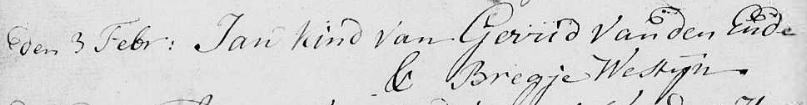 den 3 Febr: Jan kind van Gerrid van den Ende
& Bregje Westyn.